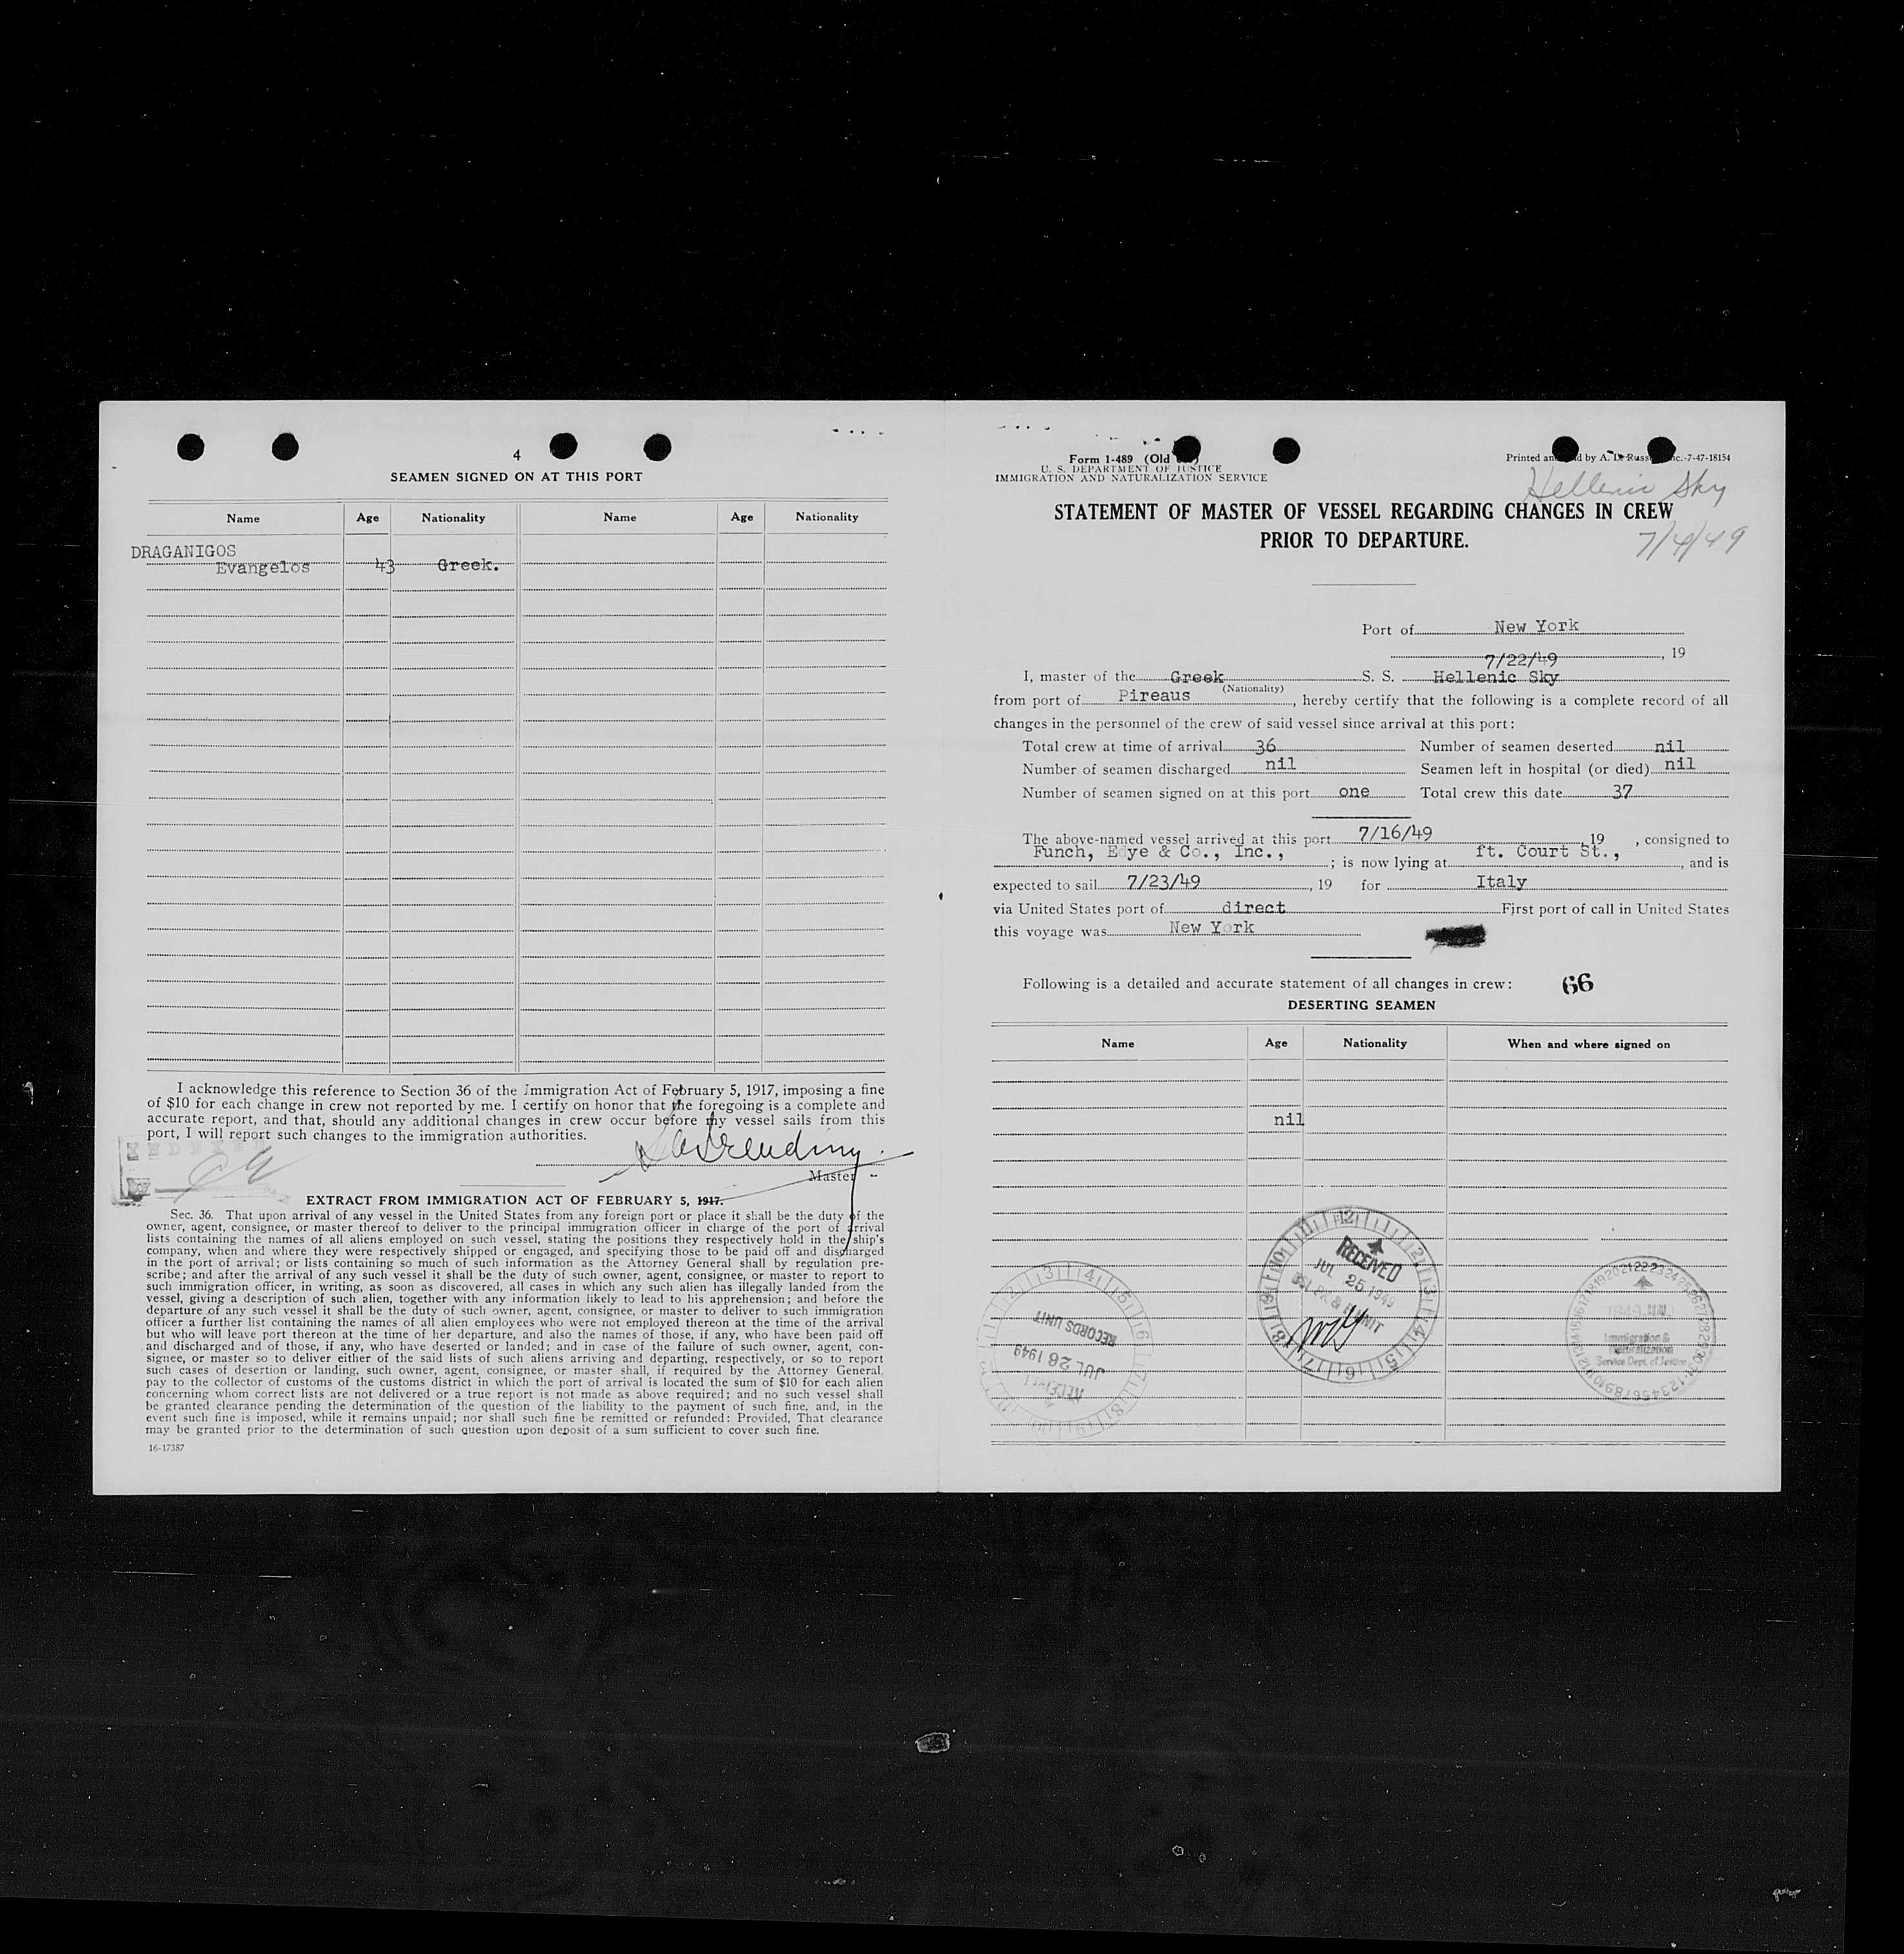 4
SEAMEN SIGNED ON AT THIS PORT
Name Age Nationality Name Age Nationality
DRAGANIGOS
Evangelos 43 Greek.
I acknowledge this reference to Section 36 of the Immigration Act of February 5, 1917, imposing a fine
of $10 for each change in crew not reported by me. I certify on honor that the foregoing is a complete and
accurate report, and that, should any additional changes in crew occur before my vessel sails from this
port, I will report such changes to the immigration authorities.
Master
EXTRACT FROM IMMIGRATION ACT OF FEBRUARY 5, 1917.
Sec. 36. That upon arrival of any vessel in the United States from any foreign port or place it shall be the duty of the
owner, agent, consignee, or master thereof to deliver to the principal immigration officer in charge of the port of arrival
lists containing the names of all aliens employed on such vessel, stating the positions they respectively hold in the ship's
company, when and where they were respectively shipped or engaged, and specifying those to be paid off and discharged
in the port of arrival; or lists containing so much of such information as the Attorney General shall by regulation pre-
scribe; and after the arrival of any such vessel it shall be the duty of such owner, agent, consignee, or master to report to
such immigration officer, in writing, as soon as discovered, all cases in which any such alien has illegally landed from the
vessel, giving a description of such alien, together with any information likely to lead to his apprehension; and before the
departure of any such vessel it shall be the duty of such owner, agent, consignee, or master to deliver to such immigration
officer a further list containing the names of all alien employees who were not employed thereon at the time of the arrival
but who will leave port thereon at the time of her departure, and also the names of those, if any, who have been paid off
and discharged and of those, if any, who have deserted or landed; and in case of the failure of such owner, agent, con-
signee, or master so to deliver either of the said lists of such aliens arriving and departing, respectively, or so to report
such cases of desertion or landing, such owner, agent, consignee, or master shall, if required by the Attorney General,
pay to the collector of customs of the customs district in which the port of arrival is located the sum of $10 for each alien
concerning whom correct lists are not delivered or a true report is not made as above required; and no such vessel shall
be granted clearance pending the determination of the question of the liability to the payment of such fine, and, in the
event such fine is imposed, while it remains unpaid; nor shall such fine be remitted or refunded: Provided, That clearance
may be granted prior to the determination of such question upon deposit of a sum sufficient to cover such fine.
16-17387
Form 1-489 (Old
U. S. DEPARTMENT OF JUSTICE
IMMIGRATION AND NATURALIZATION SERVICE
Printed an d by A. D. Russ nc.-7-47-18154
Hellenic Sky
7/4/49
STATEMENT OF MASTER OF VESSEL REGARDING CHANGES IN CREW
PRIOR TO DEPARTURE.
Port of New York
7/22/49, 19
I, master of the Greek S. S. Hellenic Sky
(Nationality)
from port of Pireaus, hereby certify that the following is a complete record of all
changes in the personnel of the crew of said vessel since arrival at this port:
Total crew at time of arrival 36 Number of seamen deserted nil
Number of seamen discharged nil Seamen left in hospital (or died) nil
Number of seamen signed on at this port one Total crew this date 37
The above-named vessel arrived at this port 7/16/49 19 , consigned to
Funch, Edye & Co., Inc., ; is now lying at ft. Court St., , and is
expected to sail 7/23/49, 19 for Italy
via United States port of direct First port of call in United States
this voyage was New York
Following is a detailed and accurate statement of all changes in crew: 66
DESERTING SEAMEN
Name Age Nationality When and where signed on
nil
RECEIVED
JUL 25 1949
RECORDS UNIT
JUL 26 1949
RECEIVED
Immigration &
Naturalization
Service Dept. of Justice